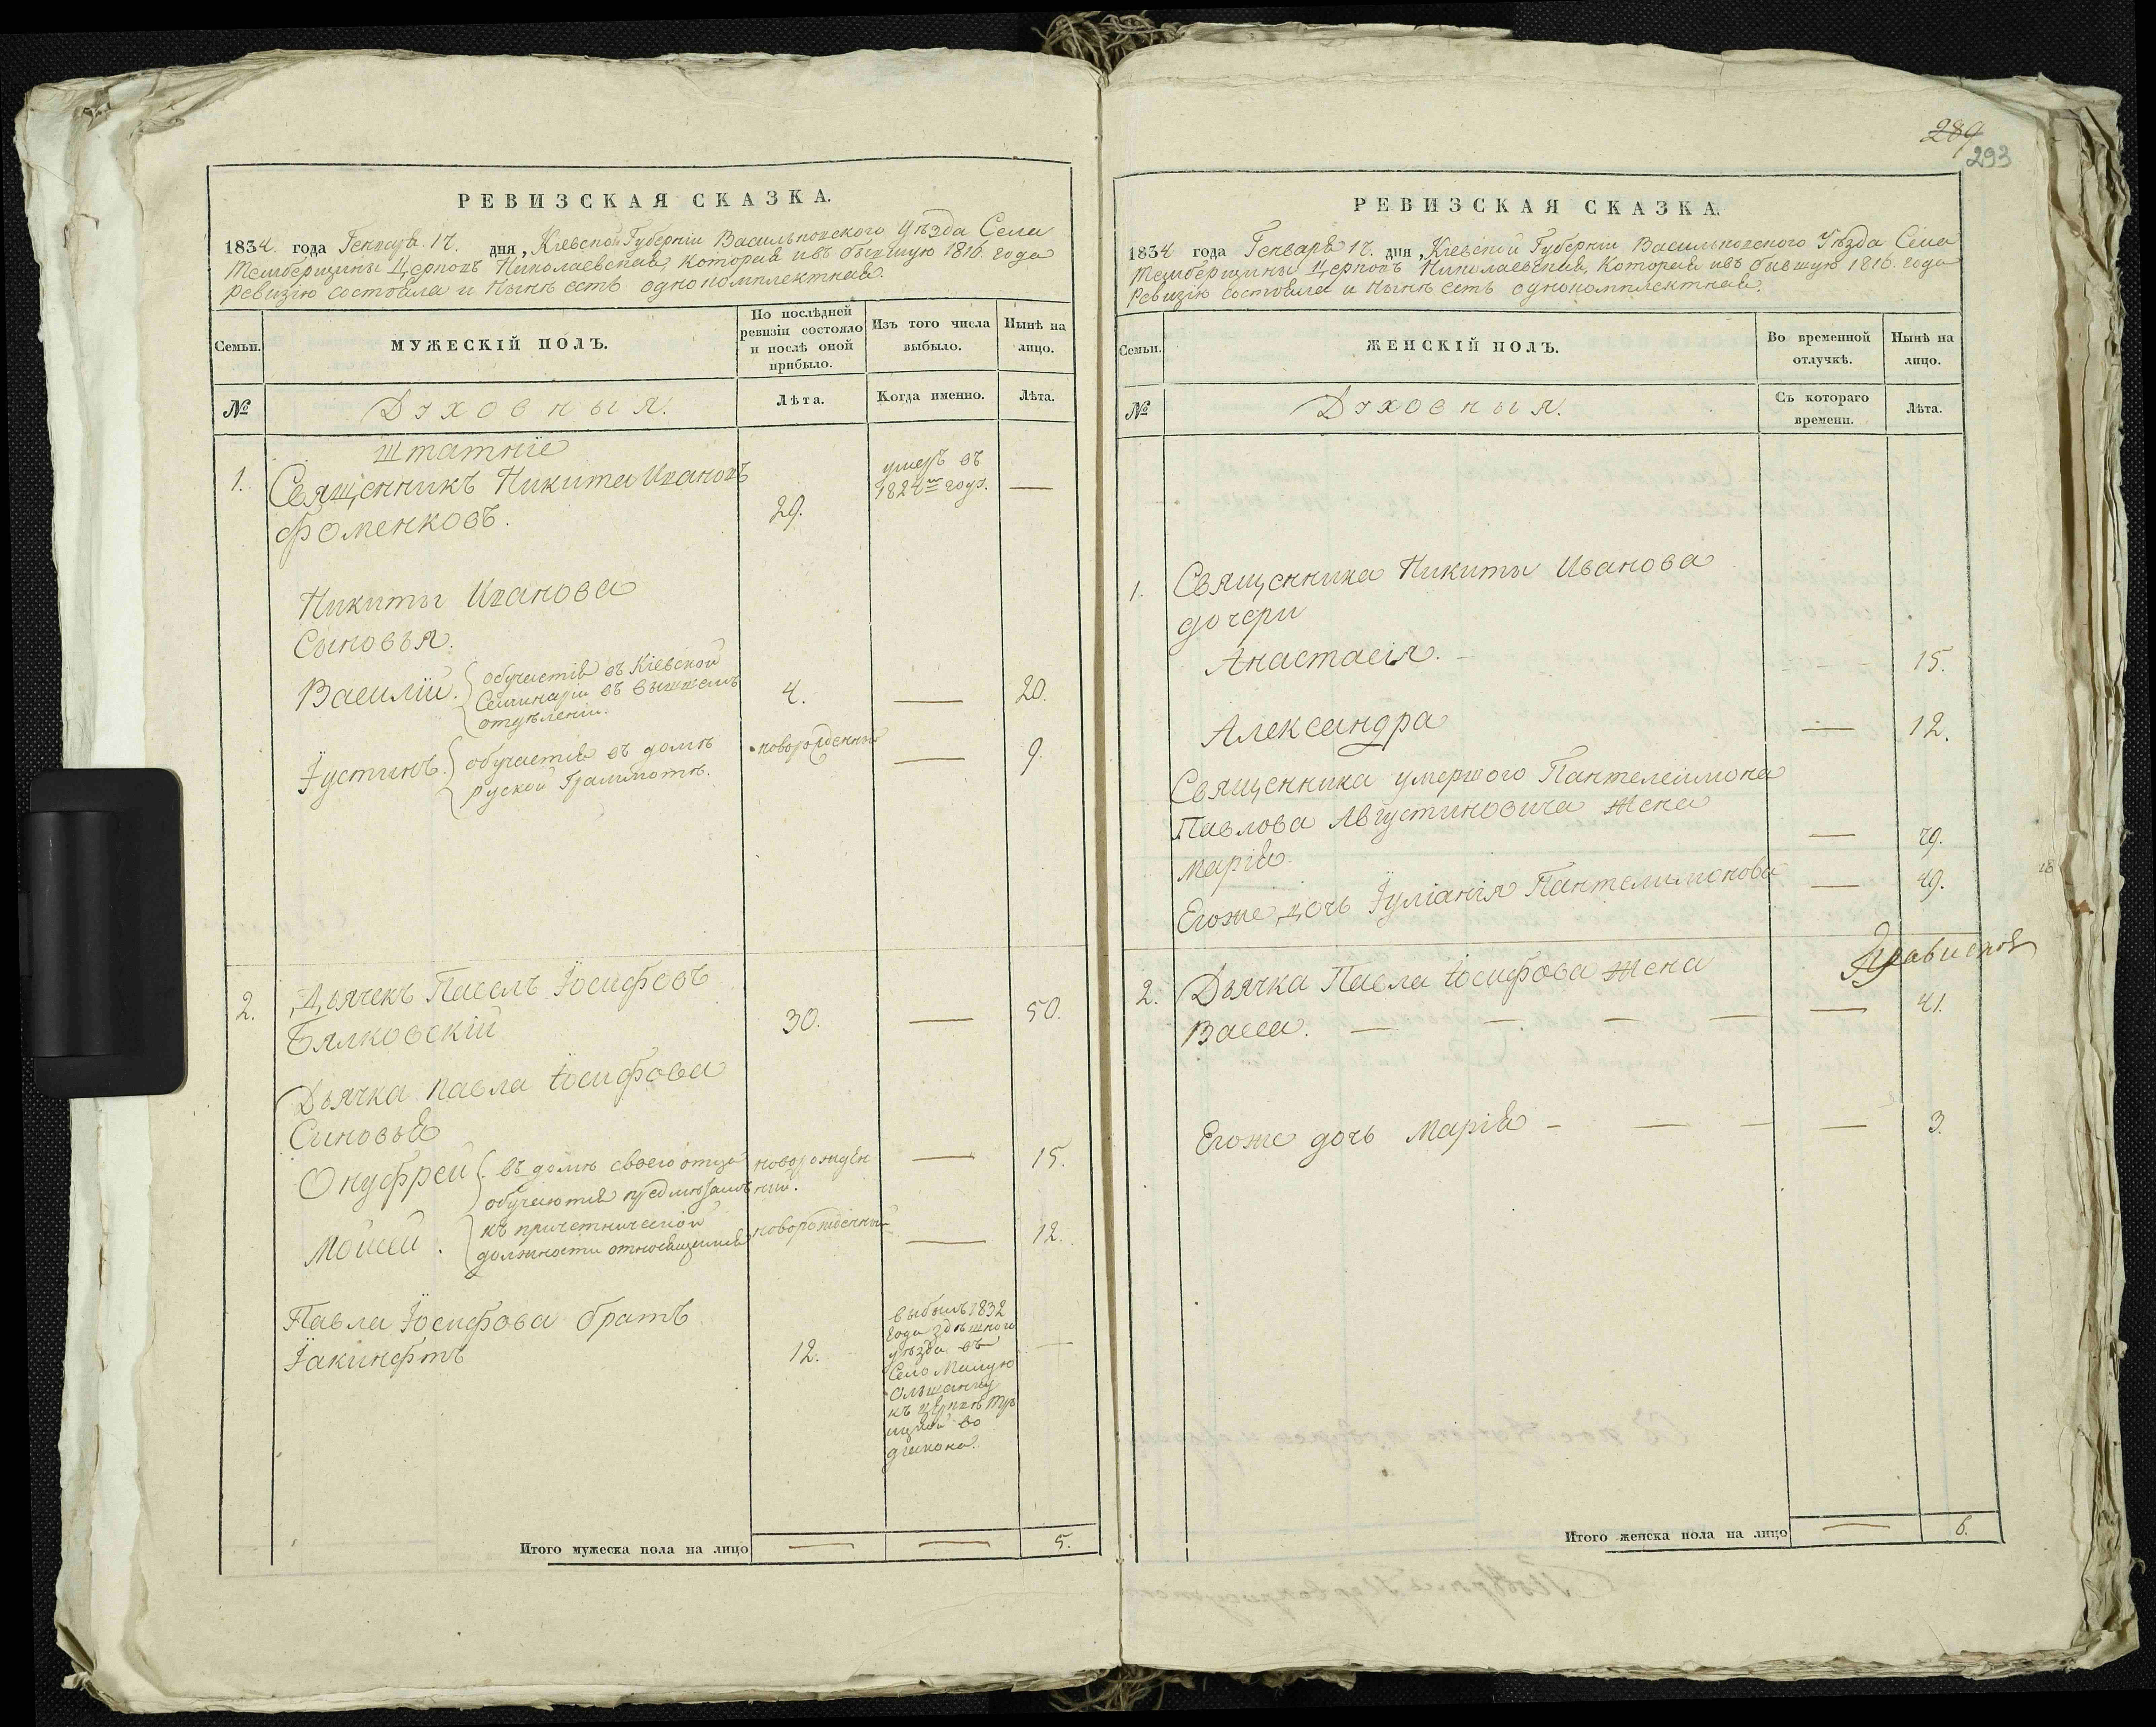 РЕВИЗСКАЯ СКАЗКА.
1834. года Генваря 17. дня, Кіевской Губерніи Васильковского Уѣзда Села
Темберщины Церковъ Николаевская, которая ивъ бывшую 1816. года
Ревизію состояла и нынѣ есть однокомплектная.
Семьи.
МУЖЕСКІЙ ПОЛЪ.
По послѣдней
ревизіи состояло
и послѣ оной
прибыло.
Изъ того числа
выбыло.
Нынѣ на
лицо.
№
Духовныя.
Лѣта.
Когда именно.
Лѣта.
Штатніе
1. Священникъ Никита Ивановъ
Фоменковъ.
29.
умеръ въ
182 году.
—
Никиты Иванова
Сыновья.
Василій. обучается въ Кіевской
Семинаріи въ вышшемъ
отдѣленіи.
4. — 20.
Іустинъ. обучается въ домѣ
руской Грамотѣ.
новорожденный — 9.
2. Дьячекъ Павелъ Іосифовъ
Бялковскій
30. — 50.
Дьячка Павла Іосифова
Синовья
Онуфрей въ домѣ своего отца
обучаются предмѣтамъ
новорожден
ный.
— 15.
Моисей. къ причетнической
должности относящимся
новорожденный — 12.
Павла Іосифова братъ
Іакинфтъ
12.
выбылъ 1832
года здѣшного
уѣзда въ
Село Малую
Ольшанку
къ церквѣ Тро
ицкой во
діякона.
—
Итого мужеска пола на лицо — — 5.
289
293
РЕВИЗСКАЯ СКАЗКА.
1834 года Генваря 17. дня, Кіевской Губерніи Васильковского Уѣзда Села
Темберщины Церковъ Николаевская, которая ивъ бывшую 1816. года
Ревизію состояла и нынѣ есть однокомплектная.
Семьи.
ЖЕНСКІЙ ПОЛЪ.
Во временной
отлучкѣ.
Нынѣ на
лицо.
№
Духовныя.
Съ котораго
времени.
Лѣта.
1. Священника Никиты Иванова
дочери
Анастасія. — 15.
Александра — 12.
Священника умершого Пантелеимона
Павлова Августиновича жена
Марія — 79.
Егоже дочь Іуліанія Пантелимонова — 49.
2. Дьячка Павла Іосифова жена
Васса. — — — — — 41.
Егоже дочь Марія — — — — 3.
Итого женска пола на лицо — 6.